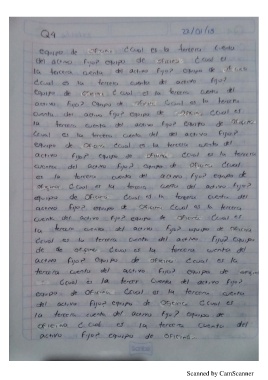 Q4 23/01/19
equipo de oficina ¿Cual es la tercera cuenta
del activo fijo? equipo de oficina ¿Cual es
la tercera cuenta del activo fijo? equipo de oficina
¿Cual es la tercera cuenta del activo fijo?
equipo de oficina ¿Cual es la tercera cuenta del
activo fijo? equipo de oficina ¿Cual es la tercera
cuenta del activo fijo? equipo de oficina ¿Cual es
la tercera cuenta del activo fijo? equipo de oficina
¿Cual es la tercera cuenta del del activo fijo?
equipo de oficina ¿Cual es la tercera cuenta del
activo fijo? equipo de oficina ¿Cual es la tercera
cuenta del activo fijo? equipo de oficina ¿Cual
es la tercera cuenta del activo fijo? equipo de
oficina ¿Cual es la tercera cuenta del activo fijo?
equipo de oficina ¿Cual es la tercera cuenta del
activo fijo? equipo de oficina ¿Cual es la tercera
cuenta del activo fijo? equipo de oficina ¿Cual es
la tercera cuenta del activo fijo? equipo de oficina
¿Cual es la tercera cuenta del activo fijo? equipo
de oficina ¿Cual es la tercera cuenta del
activo fijo? equipo de oficina ¿Cual es la
tercera cuenta del activo fijo? equipo de
¿Cual es la tercera cuenta del activo fijo?
equipo de oficina ¿Cual es la tercera cuenta
del activo fijo? equipo de oficina ¿Cual es
la tercera cuenta del activo fijo? equipo de
oficina ¿Cual es la tercera cuenta del
activo fijo? equipo de oficina.
Scanned by CamScanner